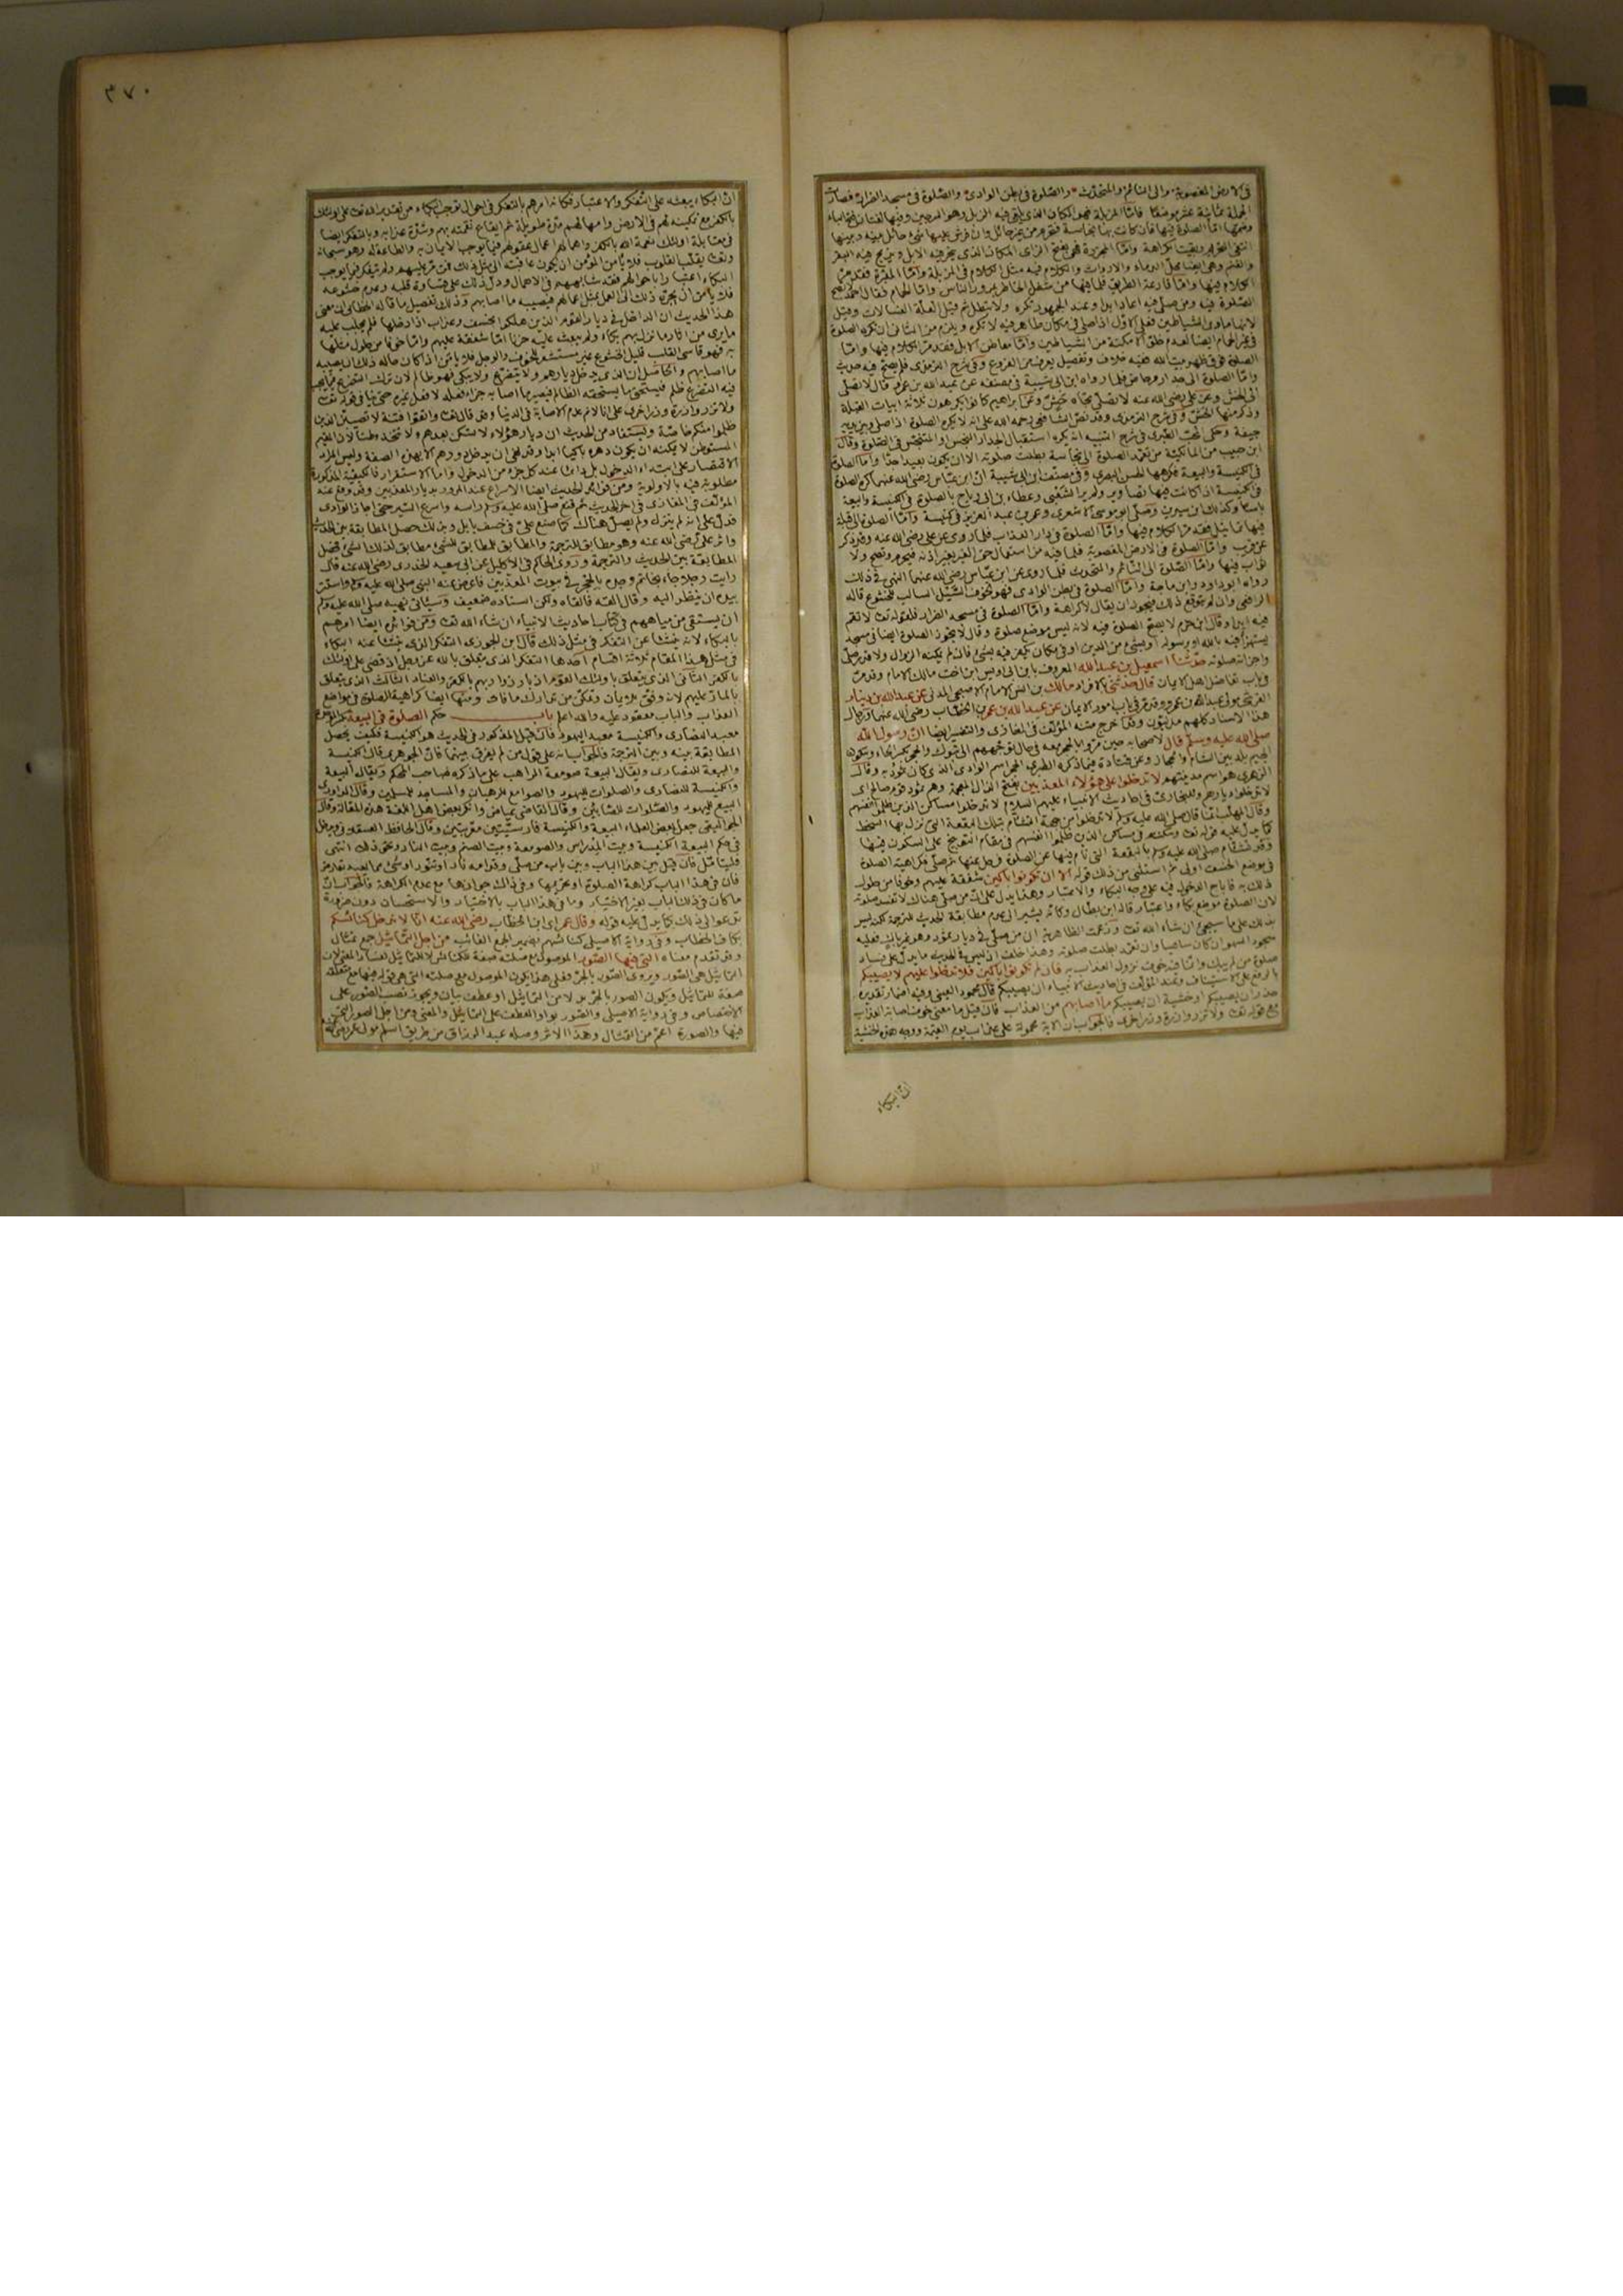 في الارض المغصوبة والى النائم والمتحدث والصلوة في بطن الوادى والصلوة في مسجد الضرار فصارت
الجملة ثمانية عشر موضعا فاما المزبلة فهو المكان الذى يلقى فيه الزبل
انتهى التحريم وبقيت الكراهة واما المجزرة فهى بفتح الزاى المكان الذى ينحر فيه الابل ويذبح فيه البقر
والغنم وهى ايضا محل الدماء والارواث والكلام فيه مثل الكلام في المزبلة واما المقبرة فقد مر
الكلام فيها واما قارعة الطريق فلما فيها من شغل الخاطر بمرور الناس واما الحمام فقال احمد لا تصح
الصلوة فيه ومن صلى فيه اعاد ابدا وعند الجمهور تكره ولا تبطل ثم قيل العلة الغسالات وقيل
لانها ماوى الشياطين فعلى الاول اذا صلى في مكان طاهر فيه لا تكره ويلزم من الثانى ان تكره الصلوة
في غير الحمام ايضا لعدم خلو الامكنة من الشياطين واما معاطن الابل فقد مر الكلام فيها واما
الصلوة فوق ظهر بيت الله ففيه خلاف وتفصيل يعرف من الفروع وفي شرح الترمذى فلم يصح فيه حديث
واما الصلوة الى جدار مرحاض فلما رواه ابن ابى شيبة في مصنفه عن عبد الله بن عمرو قال لا تصلى
الى الحش وعن على رضى الله عنه لا تصل تجاه حش وعن ابراهيم كانوا يكرهون ثلاثة ابيات القبلة
وذكر منها الحش وفي شرح الترمذى وقد نص الشافعى رحمه الله على انه لا تكره الصلوة اذا صلى وبين يديه
جيفة وحكى المحب الطبرى في شرح التنبيه انه يكره استقبال الجدار النجس والمتنجس في الصلوة وقال
ابن حبيب من المالكية من تعمد الصلوة الى نجاسة بطلت صلوته الا ان يكون بعيدا جدا واما الصلوة
في الكنيسة والبيعة فكرهها الحسن البصرى وفي مصنف ابن ابى شيبة ان ابن عباس رضى الله عنهما كره الصلوة
في الكنيسة اذا كانت فيها تصاوير ولم ير الشعبى وعطاء بن ابى رباح بالصلوة في الكنيسة والبيعة
باسا وكذلك ابن سيرين وصلى ابو موسى الاشعرى وعمر بن عبد العزيز في كنيسة واما الصلوة الى قبلة
فيها تماثيل فقد مر الكلام فيها واما الصلوة في دار العذاب فلما روى عن على رضى الله عنه وقد ذكر
عن قريب واما الصلوة في الارض المغصوبة فلما فيه من استعمال حق الغير بغير اذنه فيحرم وتصح ولا
ثواب فيها واما الصلوة الى النائم والمتحدث فلما روى عن ابن عباس رضى الله عنهما النهى في ذلك
رواه ابو داود وابن ماجة واما الصلوة في بطن الوادى فهو لخوف السيل السالب للخشوع قاله
الرافعى وان لم يتوقع ذلك فيجوز ان يقال لا كراهة واما الصلوة في مسجد الضرار فلقوله تعالى لا تقم
فيه ابدا وقال ابن حزم لا يصح الصلوة فيه لانه ليس موضع صلوة وقال لا يجوز الصلوة ايضا في مسجد
يستهزأ فيه بالله او برسوله او بشئ من الدين او في مكان يكفر فيه بشئ فان لم يمكنه الزوال ولا قدر صلى
واجزاته صلوته حدثنا اسمعيل بن عبد الله المعروف بابن ابى اويس ابن اخت مالك الامام وقد مر
في باب تفاضل اهل الايمان قال حدثنى بالافراد مالك بن انس الامام الاصبحى المدنى عن عبد الله بن دينار
القرشى مولى عبد الله بن عمر وقد مر في باب امور الايمان عن عبد الله بن عمر بن الخطاب رضى الله عنهما ورجال
هذا الاسناد كلهم مدنيون وقد اخرج متنه المؤلف في المغازى والتفسير ايضا ان رسول الله
صلى الله عليه وسلم قال لاصحابه حين مروا بالحجر معه في حال توجههم الى تبوك والحجر بكسر الحاء وسكون
الجيم بلد بين الشام والحجاز وعن قتادة فيما ذكره الطبرى الحجر اسم الوادى الذى كان ثمود به وقال
الزهرى هو اسم مدينتهم لا تدخلوا على هؤلاء المعذبين بفتح الذال المعجمة وهم ثمود قوم صالح اى
لا تدخلوا ديارهم وللبخارى في احاديث الانبياء عليهم السلام لا تدخلوا مساكن الذين ظلموا انفسهم
وقال المهلب انما قال صلى الله عليه وسلم لا تدخلوا من جهة التشاؤم بتلك البقعة التى نزل بها السخط
كما يدل عليه قوله تعالى وسكنتم في مساكن الذين ظلموا انفسهم في مقام التوبيخ على السكون فيها
وقد تشاءم صلى الله عليه وسلم بالبقعة التى نام فيها عن الصلوة فرحل عنها ثم صلى فكراهية الصلوة
في موضع الخسف اولى ثم استثنى من ذلك قوله الا ان تكونوا باكين شفقة عليهم وخوفا من حلول
ذلك به فاباح الدخول فيه على وجه البكاء والاعتبار وهذا يدل على ان من صلى هناك لا تفسد صلوته
لان الصلوة موضع بكاء واعتبار قاله ابن بطال وكانه يشير الى عدم مطابقة الحديث للترجمة لكنه ليس
بذلك على ما سيجئ ان شاء الله تعالى وزعمت الظاهرية ان من صلى في ديار ثمود وهو غير باك فعليه
سجود السهو ان كان ساهيا وان تعمد بطلت صلوته وهذا خلف اذ ليس في الحديث ما يدل على فساد
صلوة من لم يبك وانما فيه خوف نزول العذاب به فان لم تكونوا باكين فلا تدخلوا عليهم لا يصيبكم
بالرفع على الاستيناف وعند المؤلف في احاديث الانبياء ان يصيبكم قال محمود العينى وفيه اضمار تقديره
حذر ان يصيبكم او خشية ان يصيبكم ما اصابهم من العذاب فان قيل ما معنى اصابة العذاب
مع قوله تعالى ولا تزر وازرة وزر اخرى فالجواب ان الاية محمولة على عذاب يوم القيمة ووجه هذه الخشية
ان البكاء
٣٧٠
ان البكاء يبعثه على التفكر والاعتبار فكانه امرهم بالتفكر في احوال توجب البكاء من تقدير الله تعالى على اولئك
بالكفر مع تمكينه لهم في الارض وامهالهم مدة طويلة ثم ايقاع نقمته بهم وشدة عذابه وبالتفكر ايضا
في مقابلة اولئك نعمة الله بالكفر واهمالهم اعمال عقولهم فيما يوجب الايمان به والطاعة له وهو سبحانه
وتعالى يقلب القلوب فلا يامن المؤمن ان يكون عاقبته الى مثل ذلك فمن مر عليهم ولم يتفكر فيما يوجب
البكاء اعتبارا باحوالهم فقد شابههم في الاهمال ودل ذلك على قساوة قلبه وعدم خشوعه
فلا يامن ان يجره ذلك الى العمل بمثل اعمالهم فيصيبه ما اصابهم وذلك تفصيل ما قاله الخطابى ان معنى
هذا الحديث ان الداخل في ديار القوم الذين هلكوا بخسف وعذاب اذا دخلها فلم يجلب عليه
ما يرى من اثار ما نزل بهم بكاء ولم يبعث عليه حزنا اما شفقة عليهم واما خوفا من حلول مثلها
به فهو قاسى القلب قليل الخشوع غير مستشعر للخوف والوجل فلا يامن اذا كان حاله ذلك ان يصيبه
ما اصابهم والحاصل ان الذى يدخل ديارهم ولا يتضرع ولا يبكى فهو ظالم لان ترك التضرع فيما يجب
فيه التضرع ظلم فيستحق ما يستحقه الظالم فيصير ما اصابه جزاء فعله لا فعل غيره حتى ينافي قوله تعالى
ولا تزر وازرة وزر اخرى على انا لا نم عدم الاصابة في الدنيا وقد قال تعالى واتقوا فتنة لا تصيبن الذين
ظلموا منكم خاصة ويستفاد من الحديث ان ديار هؤلاء لا تسكن بعدهم ولا تتخذ وطنا لان المقيم
المستوطن لا يمكنه ان يكون دهره باكيا ابدا وقد نهى ان يدخل دورهم الا بهذه الصفة وليس المراد
الاقتصار على ابتداء الدخول بل دائما عند كل جزء من الدخول واما الاستقرار فالكيفية المذكورة
مطلوبة فيه بالاولوية ومن فوائد الحديث ايضا الاسراع عند المرور بديار المعذبين وقد وقع عند
المؤلف في المغازى في اخر الحديث ثم قنع صلى الله عليه وسلم راسه واسرع السير حتى اجاز الوادى
فدل على انه لم ينزل ولم يصل هناك كما صنع على في خسف بابل وبذلك حصل المطابقة بين الحديث
واثر على رضى الله عنه وهو مطابق للترجمة والمطابق للمطابق للشئ مطابق لذلك الشئ فحصل
المطابقة بين الحديث والترجمة وروى الحاكم في الاكليل عن ابى سعيد الخدرى رضى الله عنه قال
رايت رجلا جاء بخاتم وجده بالحجر في بيوت المعذبين فاعرض عنه النبى صلى الله عليه وسلم واستتر
بيده ان ينظر اليه وقال القه فالقاه ولكن اسناده ضعيف وسيأتى نهيه صلى الله عليه وسلم
ان يستقى من مياههم في كتاب احاديث الانبياء ان شاء الله تعالى ومن فوائده ايضا امرهم
بالبكاء لانه ينشا عن التفكر في مثل ذلك قال ابن الجوزى التفكر الذى ينشا عنه البكاء
في مثل هذا المقام ثلاثة اقسام احدها التفكر الذى يتعلق بالله عز وجل اذ قضى على اولئك
بالكفر الثانى الذى يتعلق باولئك القوم اذ بارزوا ربهم بالكفر والعناد الثالث الذى يتعلق
بالمار عليهم لانه وفق للايمان وتمكن من تدارك ما فات ومنها ايضا كراهية الصلوة في مواضع
العذاب والباب معقود عليه والله اعلم باب حكم الصلوة في البيعة
معبد النصارى والكنيسة معبد اليهود فان قيل المذكور في الحديث هو الكنيسة فكيف يحصل
المطابقة بينه وبين الترجمة فالجواب انه على قول من لم يفرق بينهما فان الجوهرى قال الكنيسة
والبيعة للنصارى ويقال البيعة صومعة الراهب على ما ذكره صاحب المحكم ويقال البيعة
والكنيسة للنصارى والصلوات لليهود والصوامع للرهبان والمساجد للمسلمين وقال الداودى
البيع لليهود والصلوات للصابئين وقال القاضى عياض وانكر بعض اهل اللغة هذه المقالة وقال
الجواليقى جعل بعض العلماء البيعة والكنيسة فارسيتين معربتين وقال الحافظ العسقلانى ويدخل
في حكم البيعة الكنيسة وبيت المدراس والصومعة وبيت الصنم وبيت النار ونحو ذلك انتهى
فليتامل فان قيل بين هذا الباب وبين باب من صلى وقدامه نار او تنور او شئ مما يعبد تعارض
فان في هذا الباب كراهة الصلوة او تحريمها وفي ذلك جوازها مع عدم الكراهة فالجواب ان
ما كان في ذلك الباب بغير الاختيار وما في هذا الباب بالاختيار والاستحسان دون ضرورة
تدعو الى ذلك كما يدل عليه قوله وقال عمر اى ابن الخطاب رضى الله عنه انا لا ندخل كنائسكم
بكاف الخطاب وفي رواية الاصيلى كنائسهم بضمير الجمع الغائب من اجل التماثيل جمع تمثال
وقد تقدم معناه التى فيها الصور الموصول مع صلته صفة للكنائس لا للتماثيل لفساد المعنى لان
التماثيل هى الصور ويروى الصور بالجر فعلى هذا يكون الموصول مع صلته التى هى قوله فيها مع متعلقه
صفة للتماثيل ويكون الصور بالجر بدلا من التماثيل او عطف بيان ويجوز نصب الصور على
الاختصاص وفي رواية الاصيلى والصور بواو العطف على التماثيل والمعنى ومن اجل الصور التى
فيها والصورة اعم من التمثال وهذا الاثر وصله عبد الرزاق من طريق اسلم مولى عمر رضى